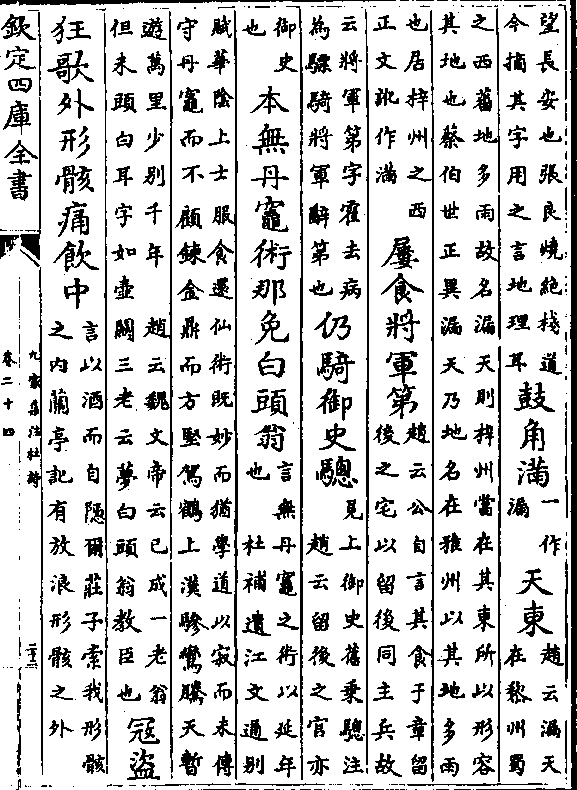 望長安也張良燒絕棧道
今摘其字用之言地理耳
鼓角滿
一作
漏
天東
趙云漏天
在黎州蜀
之西舊地多雨故名漏天則梓州當在其東所以形容
其地也蔡伯世正異漏天乃地名在雅州以其地多雨
也居梓州之西
正文訛作滿
屢食將軍第
趙云公自言其食于章留
後之宅以留後同主兵故
云將軍第字霍去病
為驃騎將軍辭第也
仍騎御史驄
見上御史舊乘驄注
趙云留後之官亦
御史
也
本無丹竈術那免白頭翁
言無丹竈之術以延年
也 杜補遺江文通別
賦華陰上士服食還仙術既妙而猶學道以寂而未傳
守丹竈而不顧鍊金鼎而方堅駕鶴上漢驂鸞騰天暫
遊萬里少別千年 趙云魏文帝云已成一老翁
但未頭白耳字如壺關三老云夢白頭翁教臣也
冦盜
狂歌外形骸痛飲中
言以酒而自隱爾莊子索我形骸
之内蘭亭記有放浪形骸之外
欽定四庫全書
九家集注杜詩
卷二十四
二十三